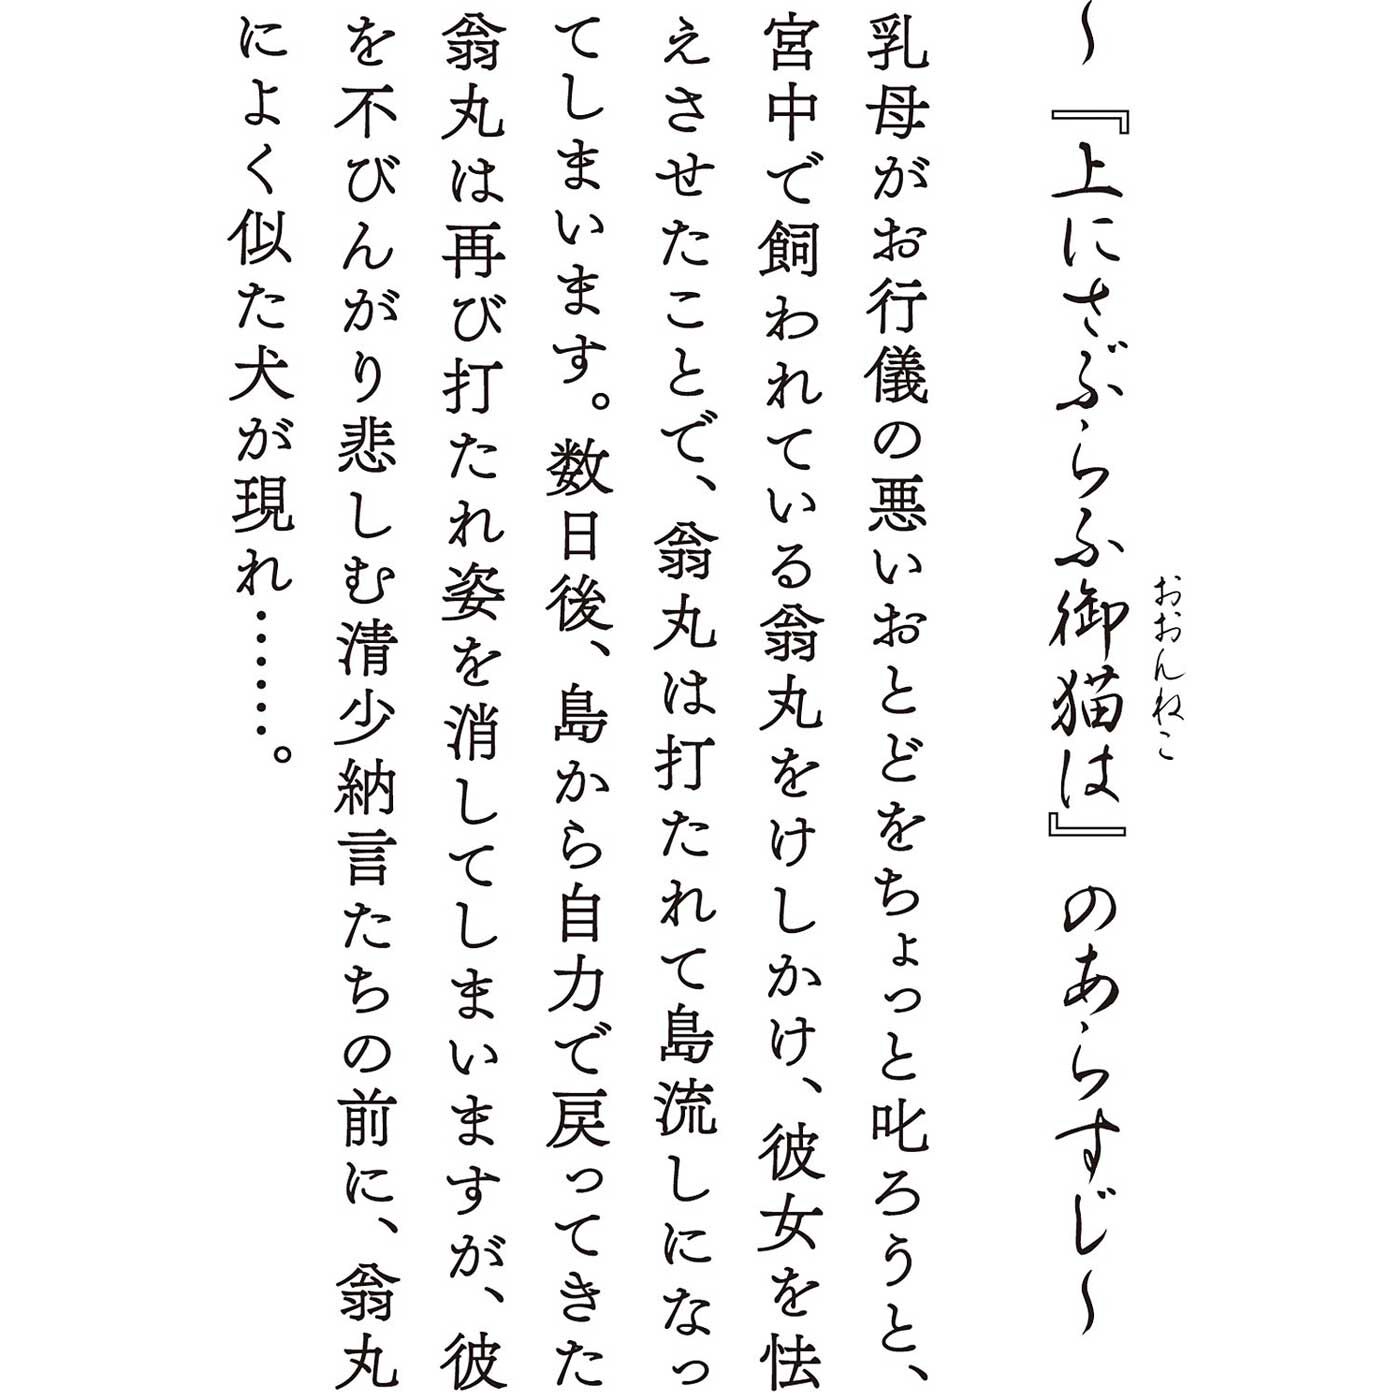 ～『上にさぶらふ御猫は』のあらすじ～
おおんねこ
乳母がお行儀の悪いおとどをちょっと叱ろうと、
宮中で飼われている翁丸をけしかけ、彼女を怯
えさせたことで、翁丸は打たれて島流しになっ
てしまいます。数日後、島から自力で戻ってきた
翁丸は再び打たれ姿を消してしまいますが、彼
を不びんがり悲しむ清少納言たちの前に、翁丸
によく似た犬が現れ……。